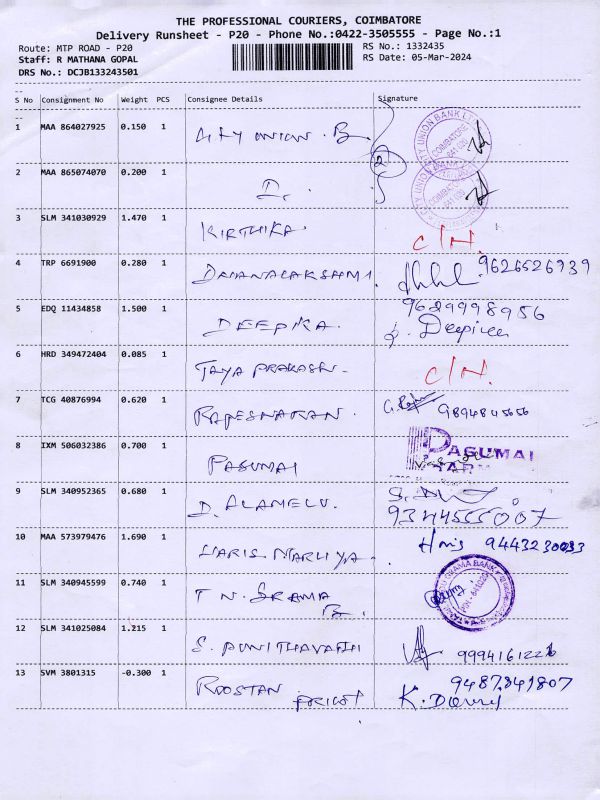 THE PROFESSIONAL COURIERS, COIMBATORE
Delivery Runsheet - P20 - Phone No.:0422-3505555 - Page No.:1
Route: MTP ROAD - P20 RS No.: 1332435
Staff: R MATHANA GOPAL RS Date: 05-Mar-2024
DRS No.: DCJB133243501
S No Consignment No Weight PCS Consignee Details Signature
1 MAA 864027925 0.150 1 CITY UNION B. CITY UNION BANK LTD COIMBATORE
2
2 MAA 865074070 0.200 1 D.
3 SLM 341030929 1.470 1 KIRTHIKA. C/N.
4 TRP 6691900 0.280 1 DHANALAKSHMI 9626526939
5 EDQ 11434858 1.500 1 DEEPIKA. 9629998956
Deepika
6 HRD 349472404 0.085 1 JAYA PRAKASH. C/N.
7 TCG 40876994 0.620 1 9894845656
8 IXM 506032386 0.700 1 PASUMAI PASUMAI
FARM
9 SLM 340952365 0.680 1 D. ALAMELU. 9344555007
10 MAA 573979476 1.690 1 HARIS 9443230033
11 SLM 340945599 0.740 1 T N. GRAMA B. GRAMA BANK
12 SLM 341025084 1.215 1 S. PUNITHAVATHI 9994161221
13 SVM 3801315 -0.300 1 ROOSTAN 9487841807